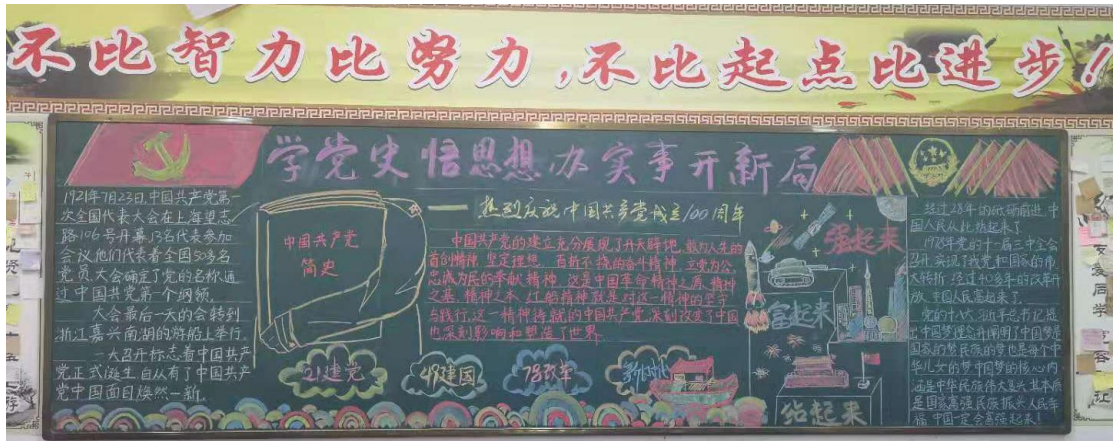 不比智力比努力,不比起点比进步!
学党史 悟思想 办实事 开新局
1921年7月23日,中国共产党第一
次全国代表大会在上海望志
路106号开幕,13名代表参加
会议他们代表着全国50多名
党员大会确定了党的名称通
过中国共党第一个纲领。
大会最后一天的会转到
浙江嘉兴南湖的游船上举行。
一大召开标志着中国共产
党正式诞生自从有了中国共产
党中国面目焕然一新。
中国共产党
简史
一 热烈庆祝中国共产党成立100周年
中国共产党的建立充分展现了开天辟地、敢为人先的
首创精神,坚定理想、百折不挠的奋斗精神,立党为公、
忠诚为民的奉献精神,这是中国革命精神之源,精神
之基,精神之本,红船精神就是对这一精神的坚守
与践行,这一精神铸就的中国共产党,深刻改变了中国
也深刻影响和塑造了世界
21建党
49建国
78改革
新时代
强起来
富起来
站起来
经过28年的 前进,中
国人民从此站起来了
1978年党的十一届三中全会
召开实现了我党和国家的伟
大转折,经过40多年的改革开
放,中国人民富起来了
党的十八大,习近平总书记提
出中国梦理念并阐明了中国梦是
国家的梦民族的梦也是每个中
华儿女的梦中国梦的核心内
涵是中华民族伟大复兴其本质
是国家富强民族振兴人民幸
福,中国一定会富强起来!
贤
友爱同学
容
让